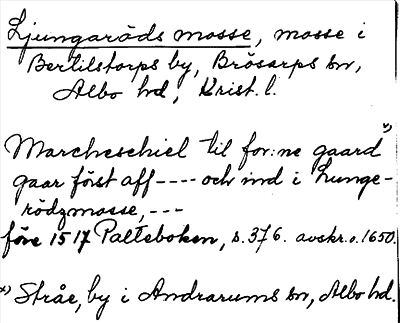 Ljungaröds mosse, mosse i
Bertilstorps by, Brösarps sn,
Albo hd, Krist. l.
Marcheschiel til for:ne gaard *)
gaar först aff ---- och ind i Lunge-
rödzmosse, ---
före 1517 Palteboken, s. 376. avskr. o. 1650.
*) Stråe, by i Andrarums sn, Albo hd.